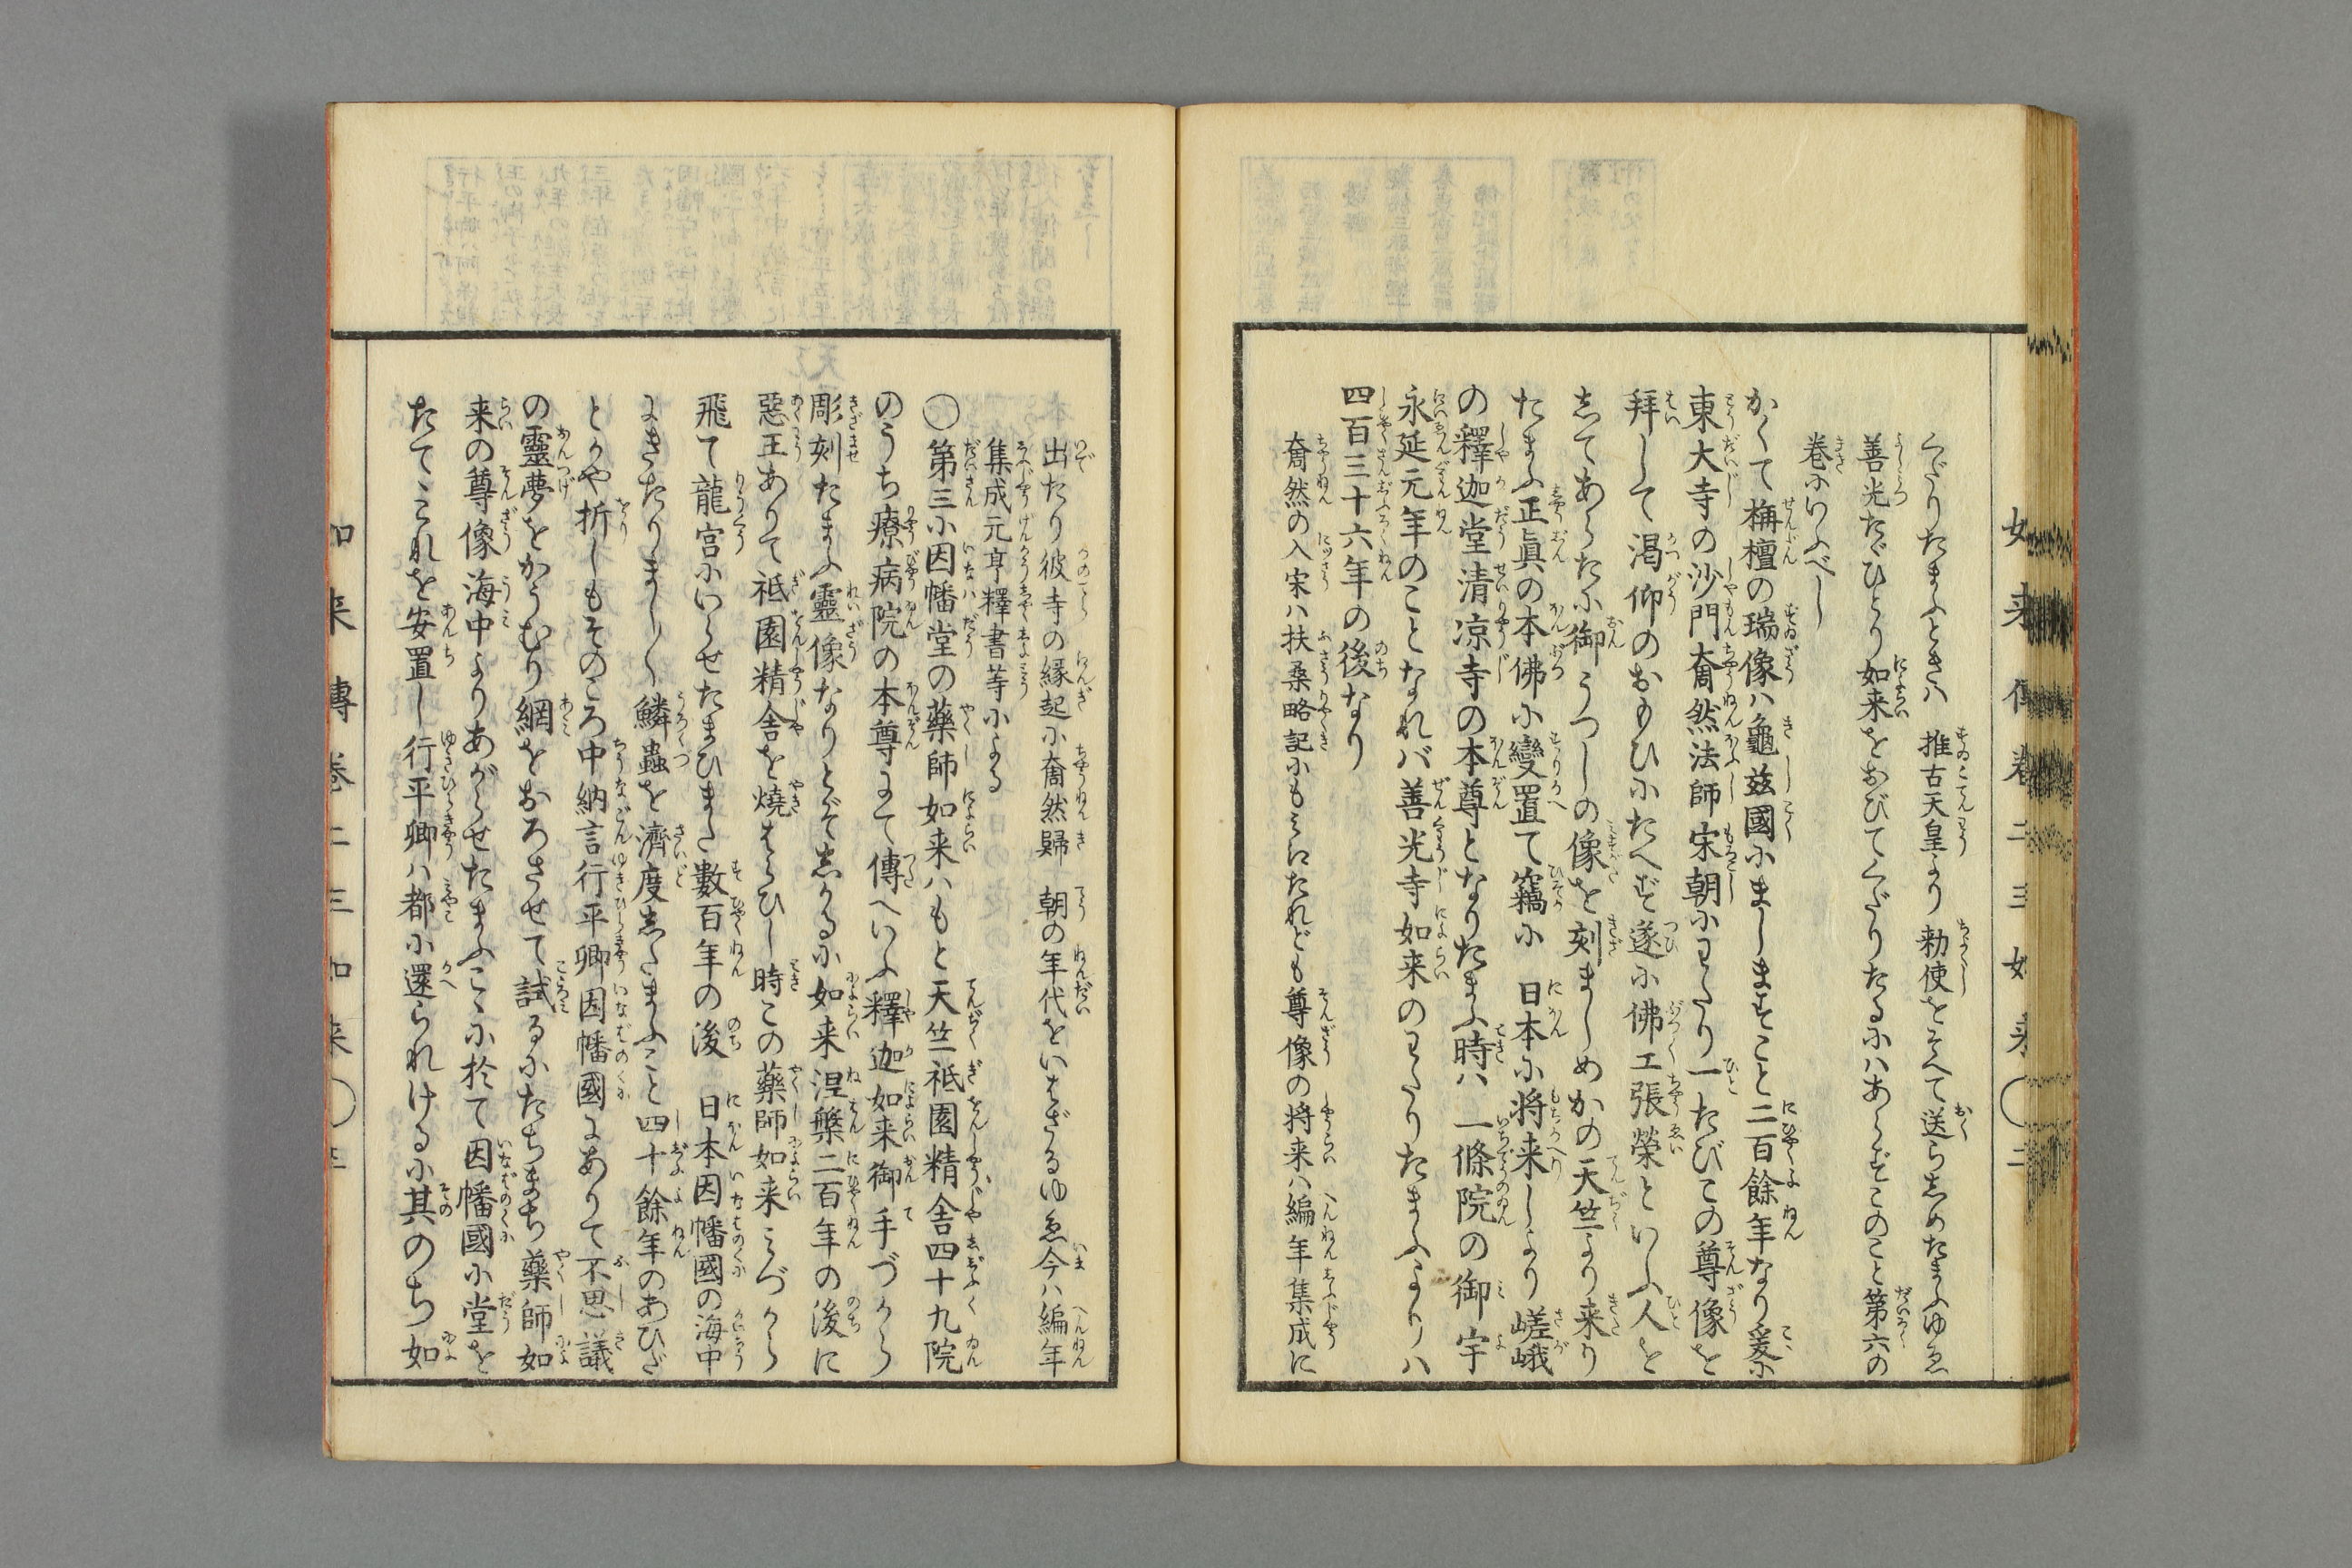 くだりたまふときハ　推古天皇より　勅使をそへて送らしめたまふゆゑ
善光たゞひとり如来をおびてくだりたるにハあらずこのこと第六の
巻にいふべし
かくて栴檀の瑞像ハ龜玆國にましますこと二百餘年なり爰に
東大寺の沙門奝然法師宋朝にわたり一たびこの尊像を
拜して渇仰のおもひにたへず遂に佛工張榮といふ人を
してあらたに御うつしの像を刻ましめかの天竺より来り
たまふ正眞の本佛に變置て竊に　日本に将来しより嵯峨
の釋迦堂清凉寺の本尊となりたまふ時ハ　一條院の御宇
永延元年のことなれバ善光寺如来のわたりたまふよりハ
四百三十六年の後なり
奝然の入宋ハ扶桑略記にもみえたれども尊像の将来ハ編年集成に
出たり彼寺の縁起に奝然歸　朝の年代をいはざるゆゑ今ハ編年
集成元亨釋書等による
○第三に因幡堂の藥師如来ハもと天竺祗園精舎四十九院
のうち療病院の本尊にて傳へいふ釋迦如来御手づから
彫刻たまふ靈像なりとぞしかるに如来涅槃二百年の後に
惡王ありて祗園精舎を燒はらひし時この藥師如来みづから
飛て龍宮にいらせたまひまた數百年の後　日本因幡國の海中
にきたりまし〳〵鱗蟲を濟度したまふこと四十餘年のあひだ
とかや折しもそのころ中納言行平卿因幡國にありて不思議
の靈夢をかうむり網をおろさせて試るにたちまち藥師如
来の尊像海中よりあがらせたまふこゝに於て因幡國に堂を
たてこれを安置し行平卿ハ都に還られけるに其のち如
如来傳卷二三如来○二
如来傳卷二三如来○三